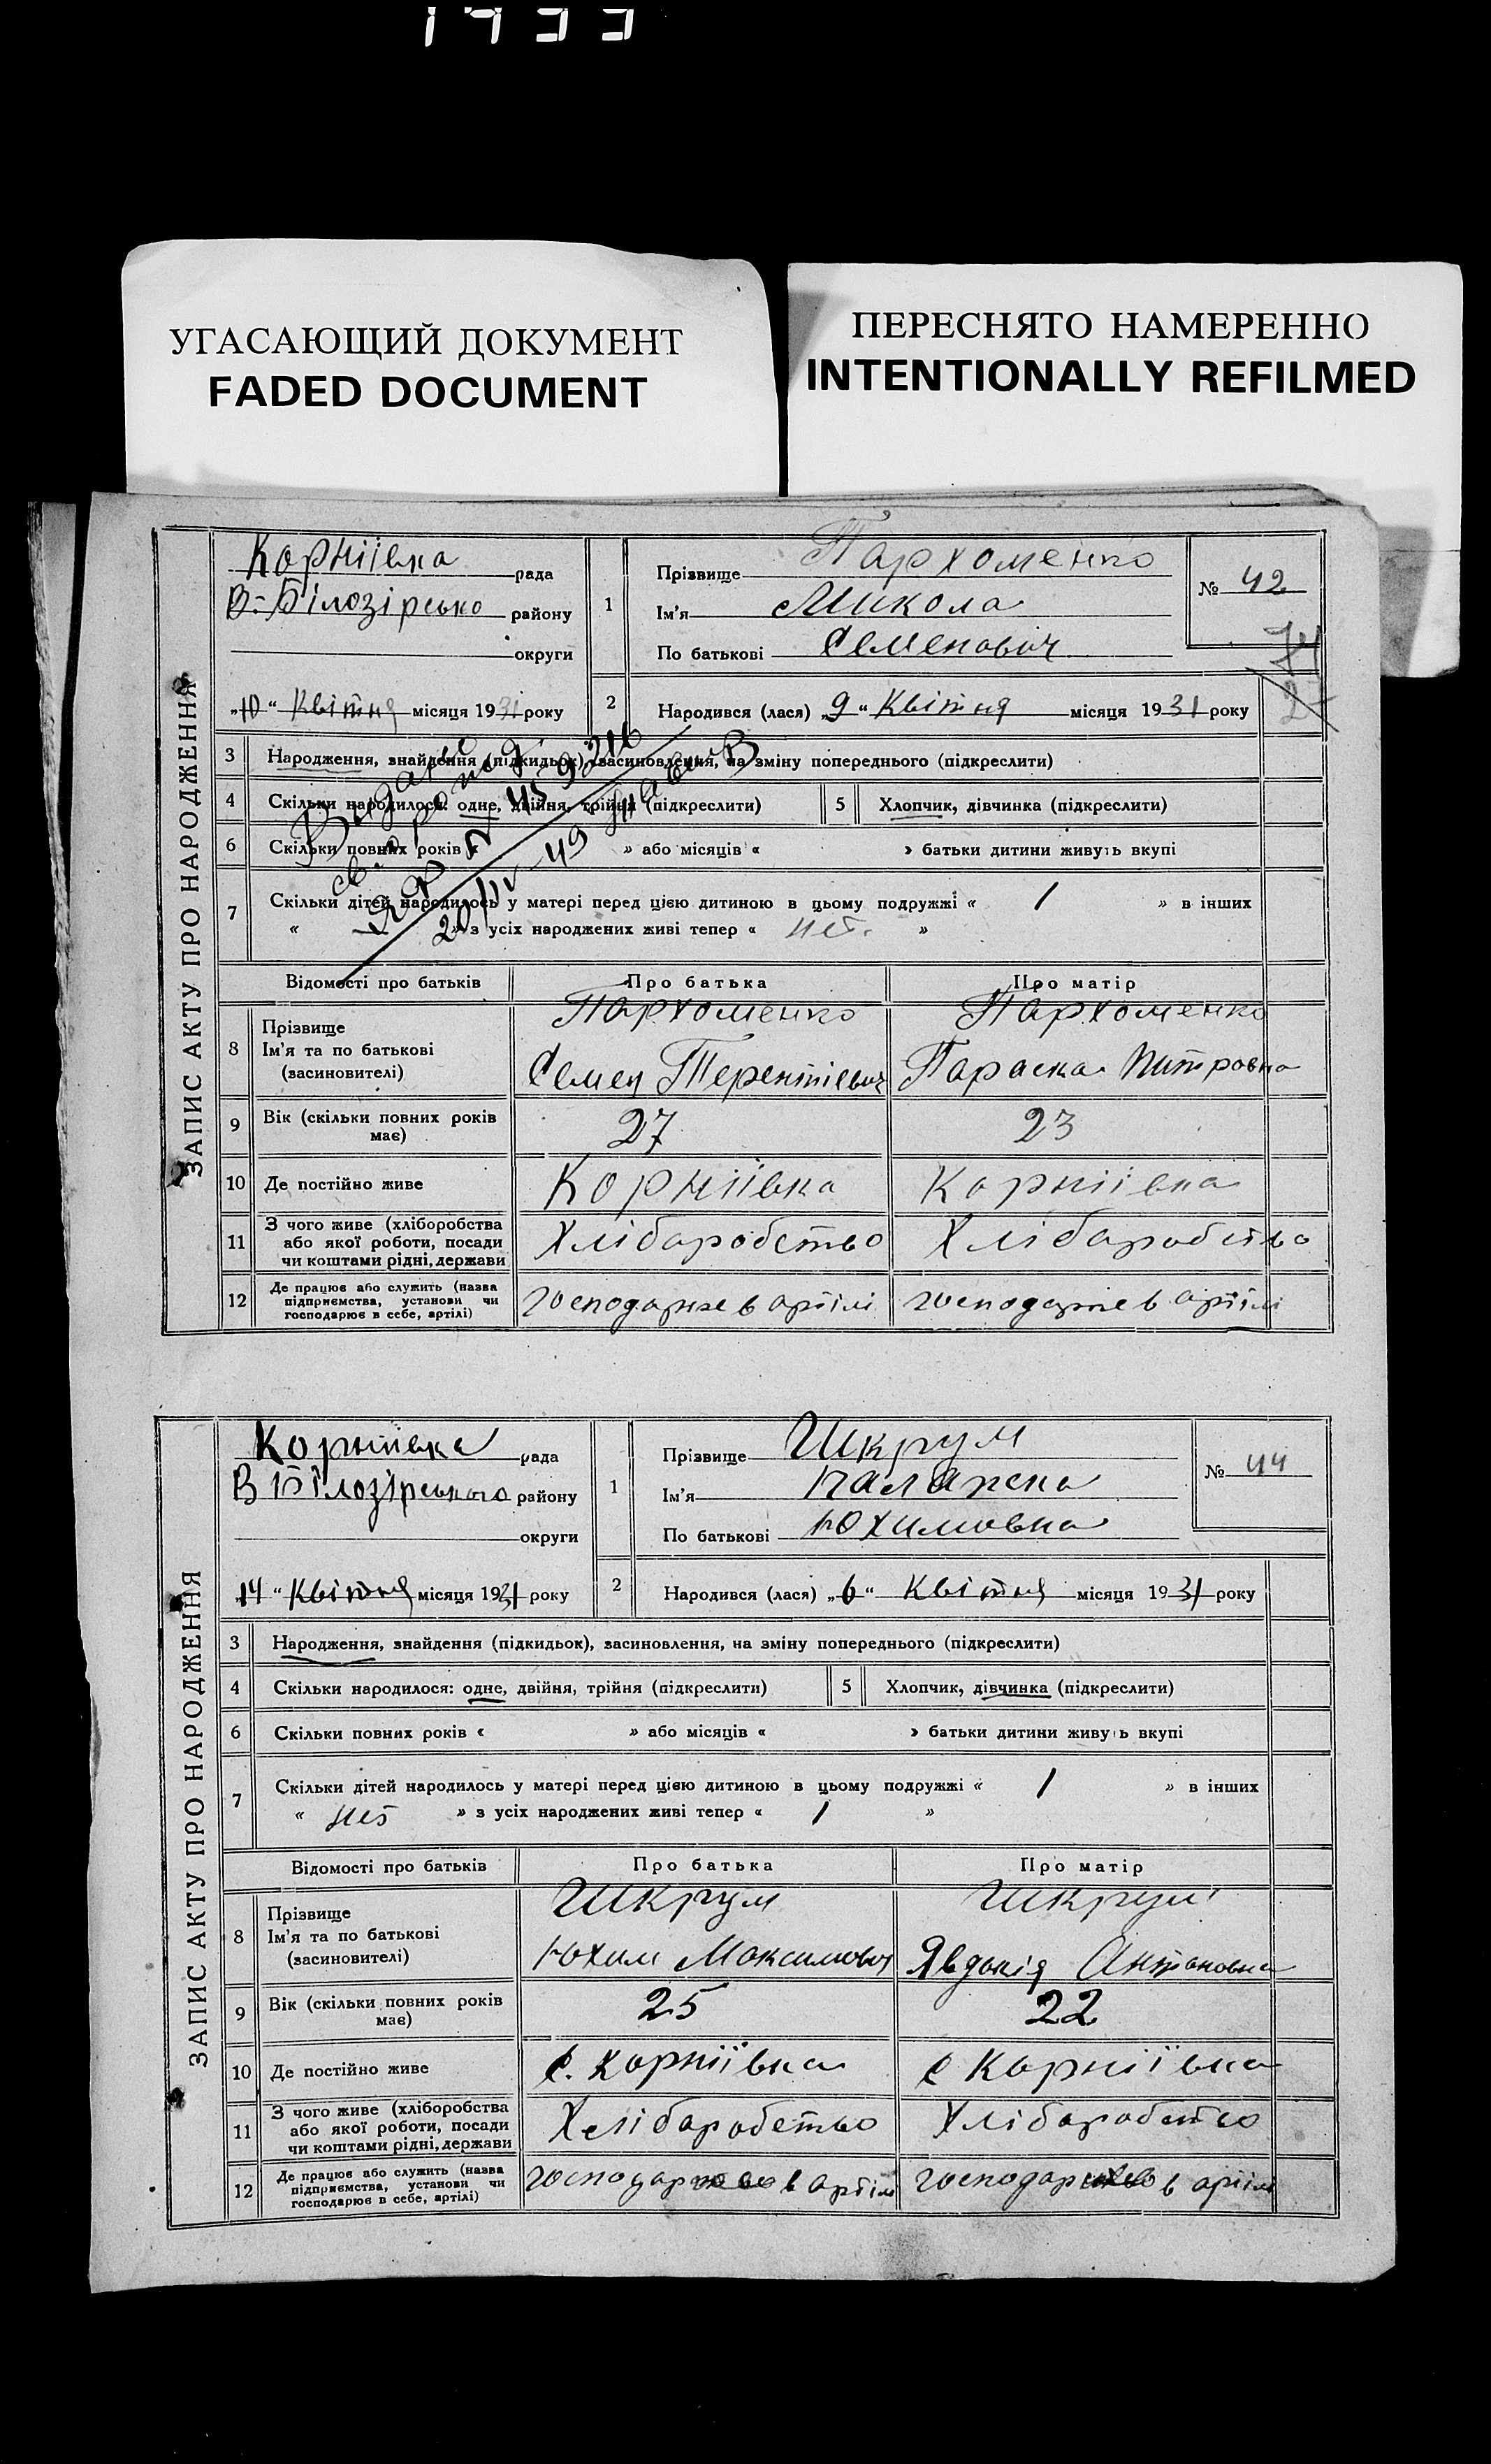 1933
УГАСАЮЩИЙ ДОКУМЕНТ
FADED DOCUMENT
ПЕРЕСНЯТО НАМЕРЕННО
INTENTIONALLY REFILMED
ЗАПИС АКТУ ПРО НАРОДЖЕННЯ
Корніївка рада
В-Білозірсько району
округи
„10“ Квітня місяця 1931 року
1 Прізвище Пархоменко
Ім'я Микола
По батькові Семенович
№ 42
74
27
2 Народився (лася) „9“ Квітня місяця 1931 року
3 Народження, знайдення (підкидьок), засиновлення, на зміну попереднього (підкреслити)
4 Скільки народилося: одне, двійня, трійня (підкреслити) 5 Хлопчик, дівчинка (підкреслити)
6 Скільки повних років « » або місяців « » батьки дитини живуть вкупі
7 Скільки дітей народилось у матері перед цією дитиною в цьому подружжі « 1 » в інших
« » з усіх народжених живі тепер « нет. »
Видано
св. о рожд.
№ 459216
20/IV-49
Відомості про батьків Про батька Про матір
8 Прізвище Ім'я та по батькові (засновителі)
Пархоменко Пархоменко
Семен Терентіевич Параска Питровна
9 Вік (скільки повних років має) 27 23
10 Де постійно живе Корніївка Корніївка
11 З чого живе (хліборобства або якої роботи, посади чи коштами рідні, держави Хлібаробство Хлібаробство
12 Де працює або служить (назва підприємства, установи чи господарює в себе, артілі) господарює в артілі господарює в артілі
ЗАПИС АКТУ ПРО НАРОДЖЕННЯ
Корніївка рада
В Білозірського району
округи
„14“ Квітня місяця 1931 року
1 Прізвище Шкрум
Ім'я Палажка
По батькові Юхимовна
№ 44
2 Народився (лася) „6“ Квітня місяця 1931 року
3 Народження, знайдення (підкидьок), засиновлення, на зміну попереднього (підкреслити)
4 Скільки народилося: одне, двійня, трійня (підкреслити) 5 Хлопчик, дівчинка (підкреслити)
6 Скільки повних років « » або місяців « » батьки дитини живуть вкупі
7 Скільки дітей народилось у матері перед цією дитиною в цьому подружжі « 1 » в інших
« нет » з усіх народжених живі тепер « 1 »
Відомості про батьків Про батька Про матір
8 Прізвище Ім'я та по батькові (засиновителі)
Шкрум Шкрум
Юхим Максимович Явдокія Антоновна
9 Вік (скільки повних років має) 25 22
10 Де постійно живе с. Корніївка с Корніївка
11 З чого живе (хліборобства або якої роботи, посади чи коштами рідні, держави Хлібаробство Хлібаробство
12 Де працює або служить (назва підприємства, установи чи господарює в себе, артілі) в артілі в артілі